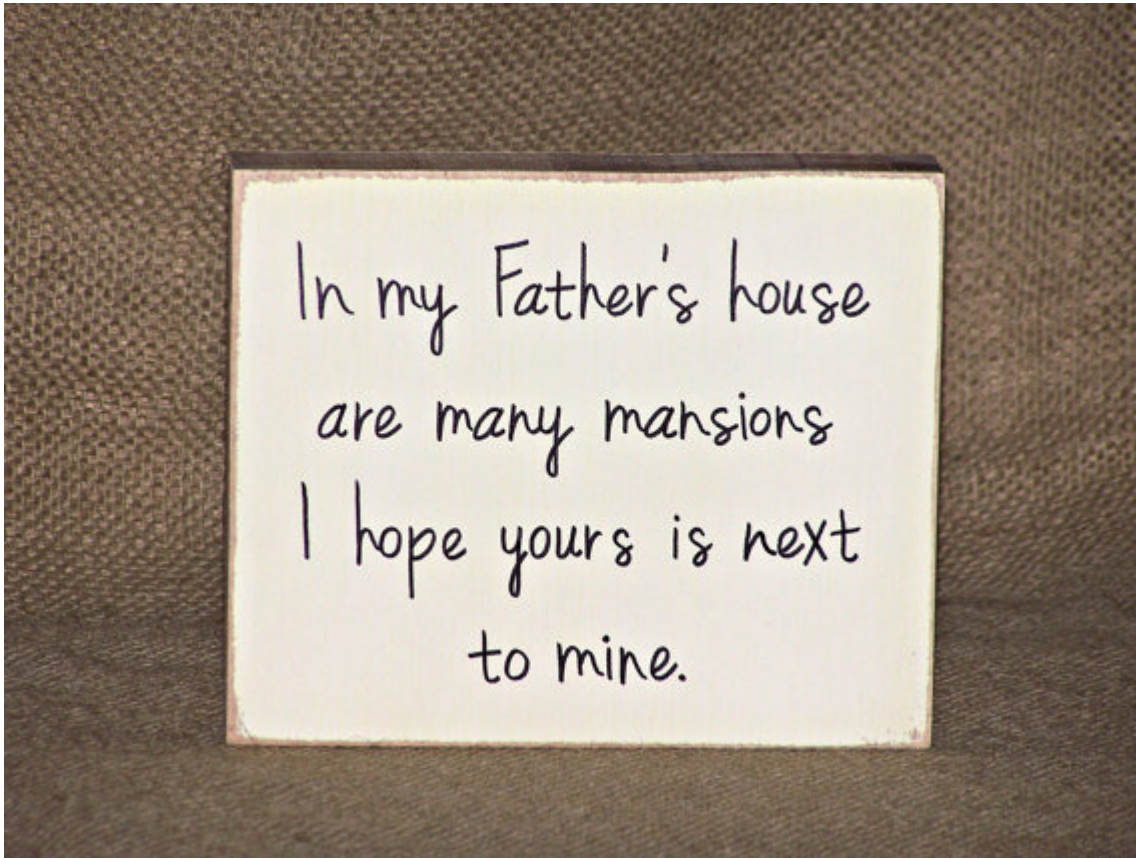 In my Father's house
are many mansions
I hope yours is next
to mine.